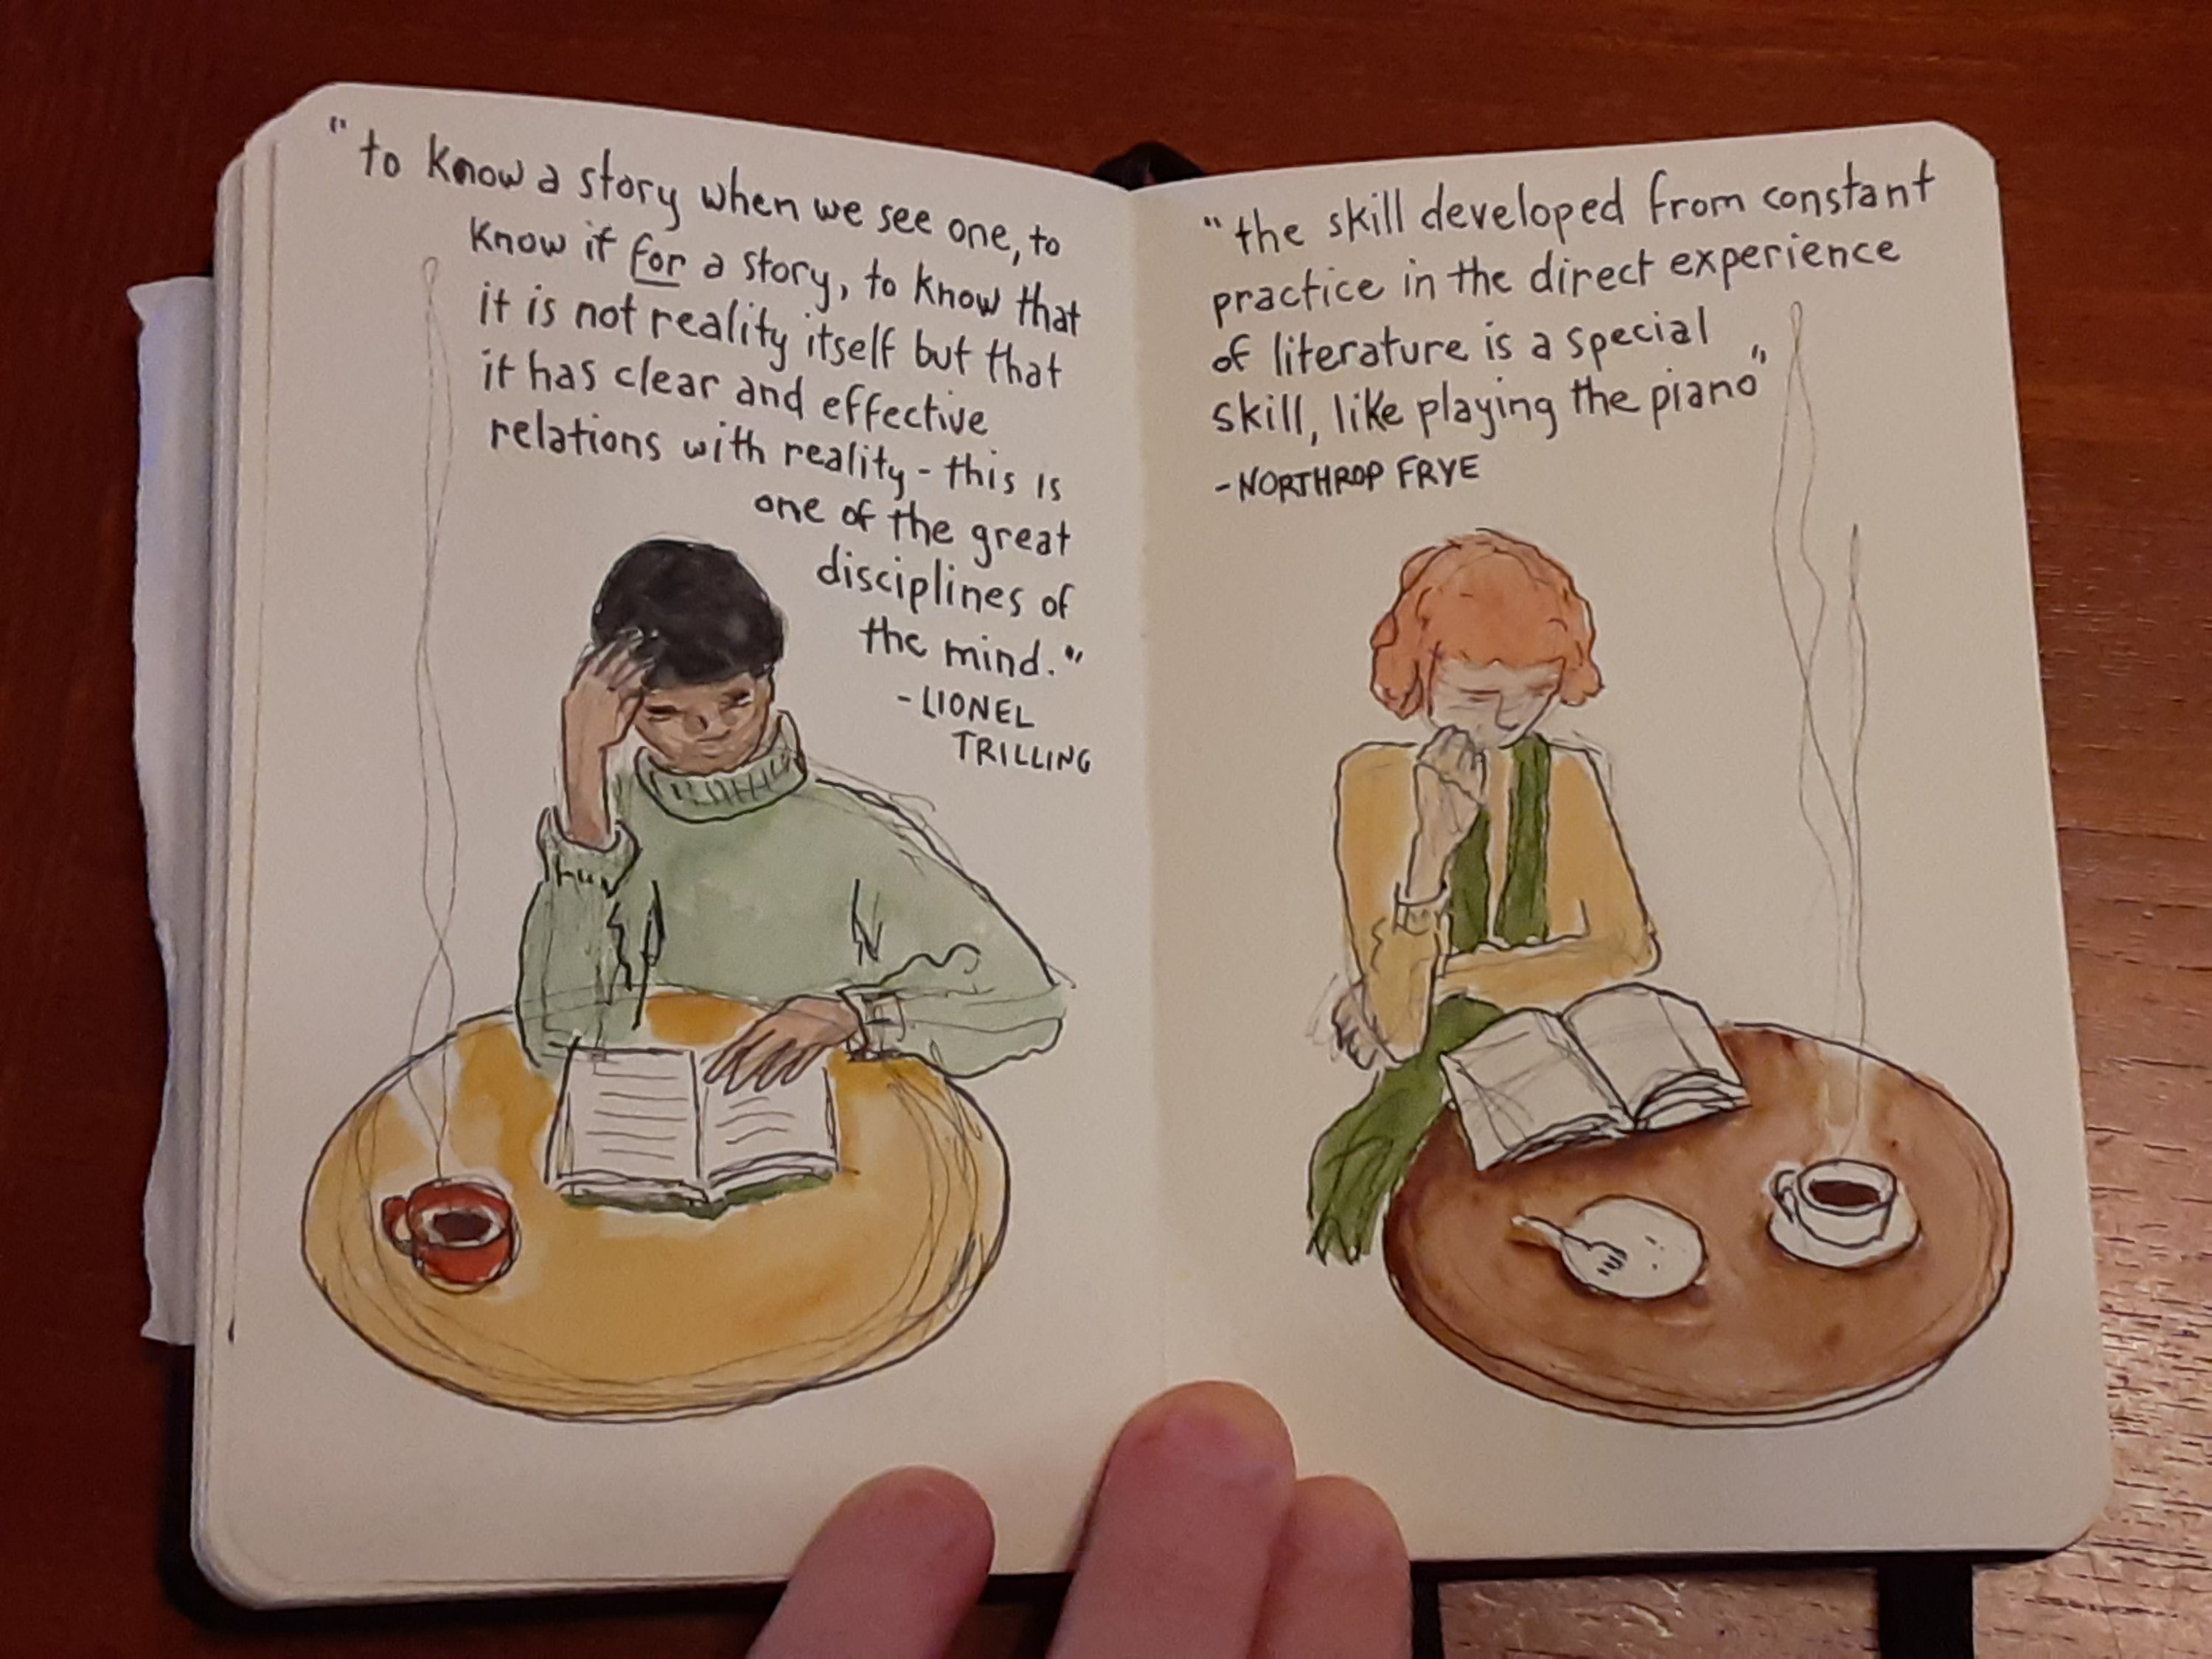 "to know a story when we see one, to
know it for a story, to know that
it is not reality itself but that
it has clear and effective
relations with reality - this is
one of the great
disciplines of
the mind."
- LIONEL
TRILLING
"the skill developed from constant
practice in the direct experience
of literature is a special
skill, like playing the piano"
- NORTHROP FRYE